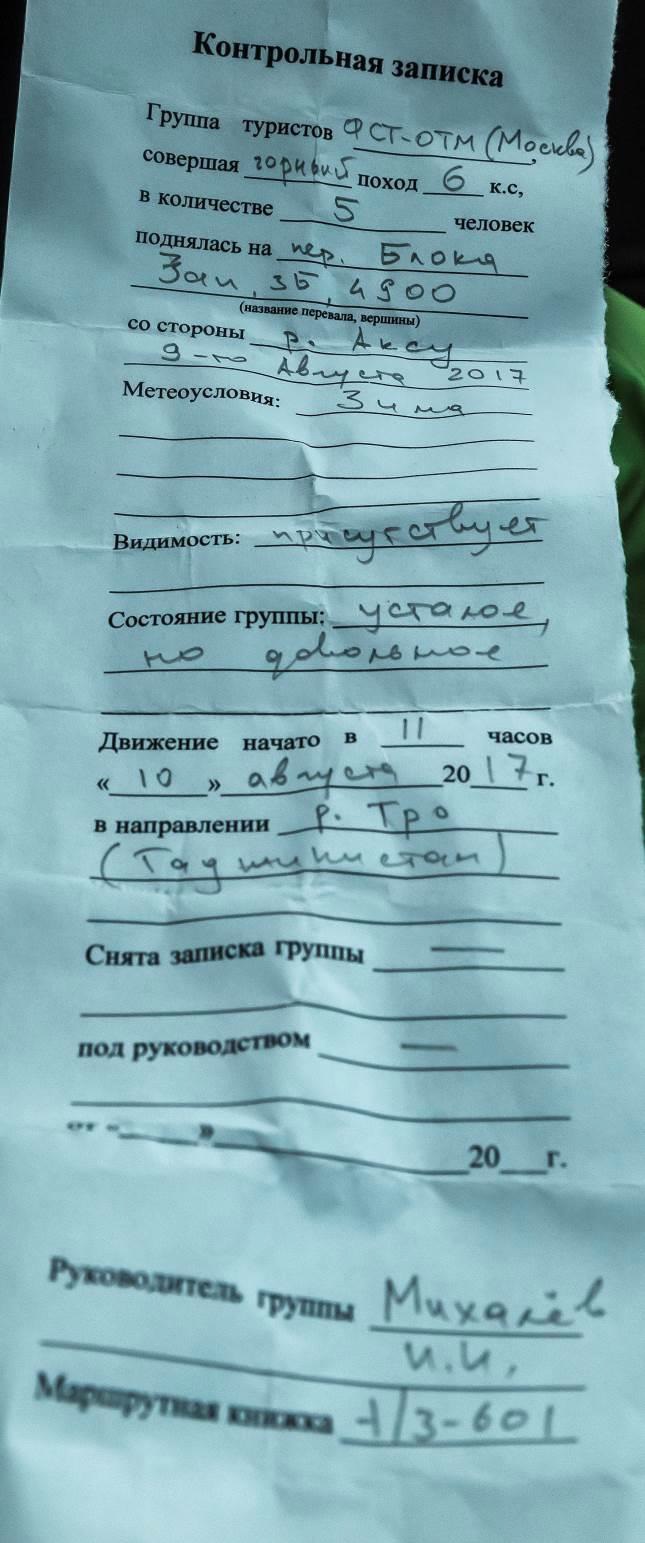 Контрольная записка
Группа туристов ФСТ-ОТМ (Москва),
совершая горный поход 6 к.с,
в количестве 5 человек
поднялась на пер. Блока
Зап, 3Б, 4900
(название перевала, вершины)
со стороны р. Аксу
9-го Августа 2017
Метеоусловия: Зима
Видимость: присутствует
Состояние группы: усталое,
но довольное
Движение начато в 11 часов
«10» августа 2017 г.
в направлении р. Тро
(Таджикистан)
Снята записка группы —
под руководством —
от «___»___20___г.
Руководитель группы Михалёв
И.И.
Маршрутная книжка 1/3-601